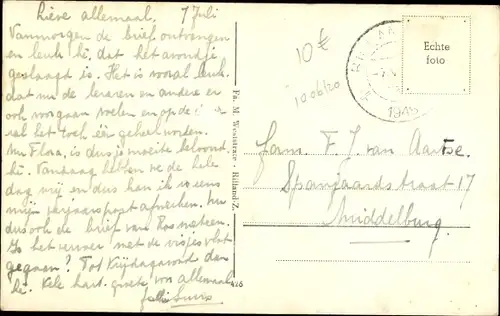 Lieve allemaal, 7 Juli
Vanmorgen de brief ontvangen
en leuk hè, dat het avondje
geslaagd is. Het is vooral leuk
dat nu de leraren en andere er
ook voor gaan voelen en op de
het toch één geheel worden.
Nu Flora, is dus je moeite beloond
hè. Vandaag hebben we de hele
dag vrij en dus kan ik eens
mijn verjaarspost afwerken. Nu
dus ook de brief van
Is het vervoer met de visjes vlot
gegaan? Tot Vrijdagavond dan
hè. Vele hart. groeten voor allemaal
Fa. M. Weststrate - Rilland-Z.
476
10€
100620
RILLAND
1945
Echte
foto
Fam. F. J. van Aartse.
Spanjaardstraat 17
Middelburg.